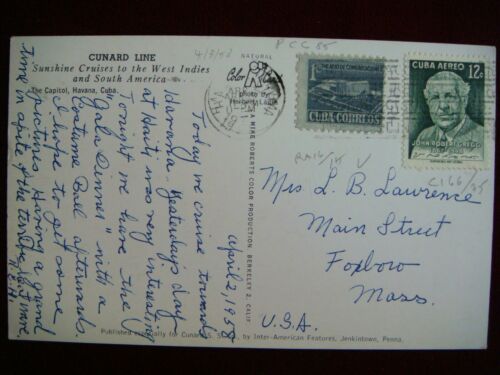 CUNARD LINE
Sunshine Cruises to the West Indies
and South America
The Capitol, Havana, Cuba.
4/3/58
PCC 55
NATURAL
Color
photo by
Herbert Lanks
PALACIO DE COMUNICACIONES
1c
CUBA CORREOS
CUBA AEREO 12c
JOHN ROBERT GREGG
RA16/15 V
C166/35
MIKE ROBERTS COLOR PRODUCTION, BERKELEY 2, CALIF.
April 2, 1958
Today we cruise toward
Havana. Yesterday's day
at Haiti was very interesting.
Tonight we have the
"Gala Dinner" with a
Costume Ball afterwards.
I hope to get some
pictures. Having a grand
time in spite of the
H.E.H.
Mrs. L. B. Lawrence
Main Street
Foxboro
Mass.
U.S.A.
Published especially for Cunard S. S. Co., by Inter-American Features, Jenkintown, Penna.